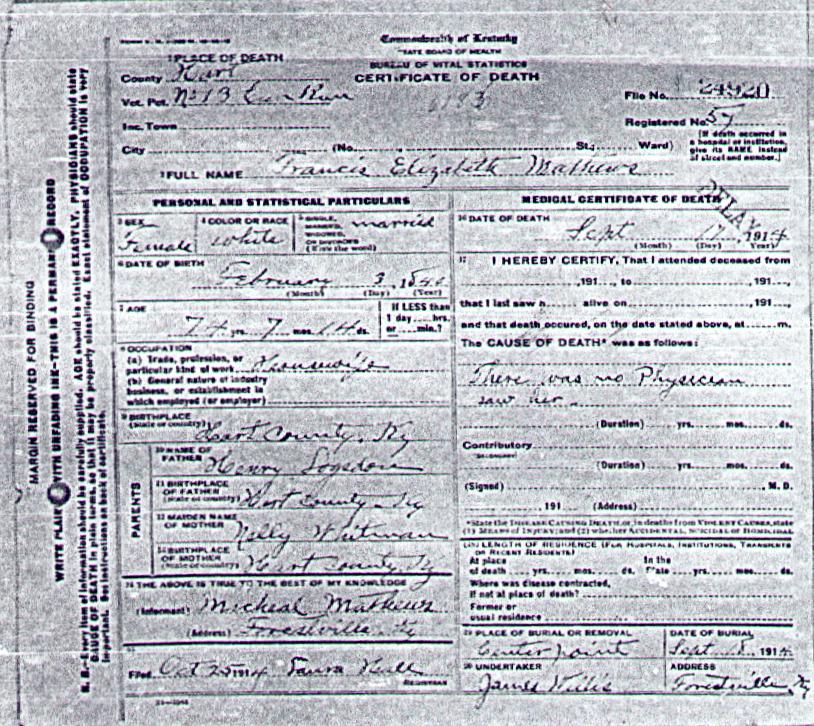 Commonwealth of Kentucky
STATE BOARD OF HEALTH
BUREAU OF VITAL STATISTICS
CERTIFICATE OF DEATH
1 PLACE OF DEATH
County Hart
Vot. Pct. No 13 Run
Inc. Town
City (No. St.; Ward)
File No. 24920
Registered No. 57
[If death occurred in
a hospital or institution,
give its NAME instead
of street and number.]
2 FULL NAME Francis Elizabeth Mathews
PERSONAL AND STATISTICAL PARTICULARS
3 SEX
Female
4 COLOR OR RACE
white
5 SINGLE,
MARRIED,
WIDOWED,
OR DIVORCED
(Write the word)
married
6 DATE OF BIRTH
February 3, 1840
(Month) (Day) (Year)
7 AGE
74 yrs 7 mos 14 ds.
If LESS than
1 day......hrs.
or......min.?
8 OCCUPATION
(a) Trade, profession, or
particular kind of work Housewife
(b) General nature of industry
business, or establishment in
which employed (or employer)
9 BIRTHPLACE
(State or country)
Hart County, Ky
PARENTS
10 NAME OF
FATHER
Henry Logsdon
11 BIRTHPLACE
OF FATHER
(State or country) Hart County, Ky
12 MAIDEN NAME
OF MOTHER
Nelly Whitman
13 BIRTHPLACE
OF MOTHER
(State or country) Hart County, Ky
14 THE ABOVE IS TRUE TO THE BEST OF MY KNOWLEDGE
(Informant) Micheal Mathews
(Address) Forestville, Ky
15
Filed Oct 25 1914 Laura
REGISTRAR
MEDICAL CERTIFICATE OF DEATH
DELAY
16 DATE OF DEATH
Sept 17, 1914
(Month) (Day) (Year)
17 I HEREBY CERTIFY, That I attended deceased from
, 191..., to , 191...,
that I last saw h alive on , 191...,
and that death occured, on the date stated above, at ......m.
The CAUSE OF DEATH* was as follows:
There was no Physician
saw her
(Duration) yrs. mos. ds.
Contributory
(SECONDARY)
(Duration) yrs. mos. ds.
(Signed) M. D.
191 (Address)
*State the DISEASE CAUSING DEATH, or, in deaths from VIOLENT CAUSES, state
(1) MEANS OF INJURY; and (2) whether ACCIDENTAL, SUICIDAL or HOMICIDAL
18 LENGTH OF RESIDENCE (FOR HOSPITALS, INSTITUTIONS, TRANSIENTS
OR RECENT RESIDENTS)
At place In the
of death yrs. mos. ds. State yrs. mos. ds.
Where was disease contracted,
if not at place of death?
Former or
usual residence
19 PLACE OF BURIAL OR REMOVAL
Center point
DATE OF BURIAL
Sept 18, 1914
20 UNDERTAKER
James Willis
ADDRESS
Forestville, Ky
MARGIN RESERVED FOR BINDING
WRITE PLAINLY WITH UNFADING INK—THIS IS A PERMANENT RECORD
N. B.—Every item of information should be carefully supplied. AGE should be stated EXACTLY. PHYSICIANS should state
CAUSE OF DEATH in plain terms, so that it may be properly classified. Exact statement of OCCUPATION is very
important. See instructions on back of certificate.